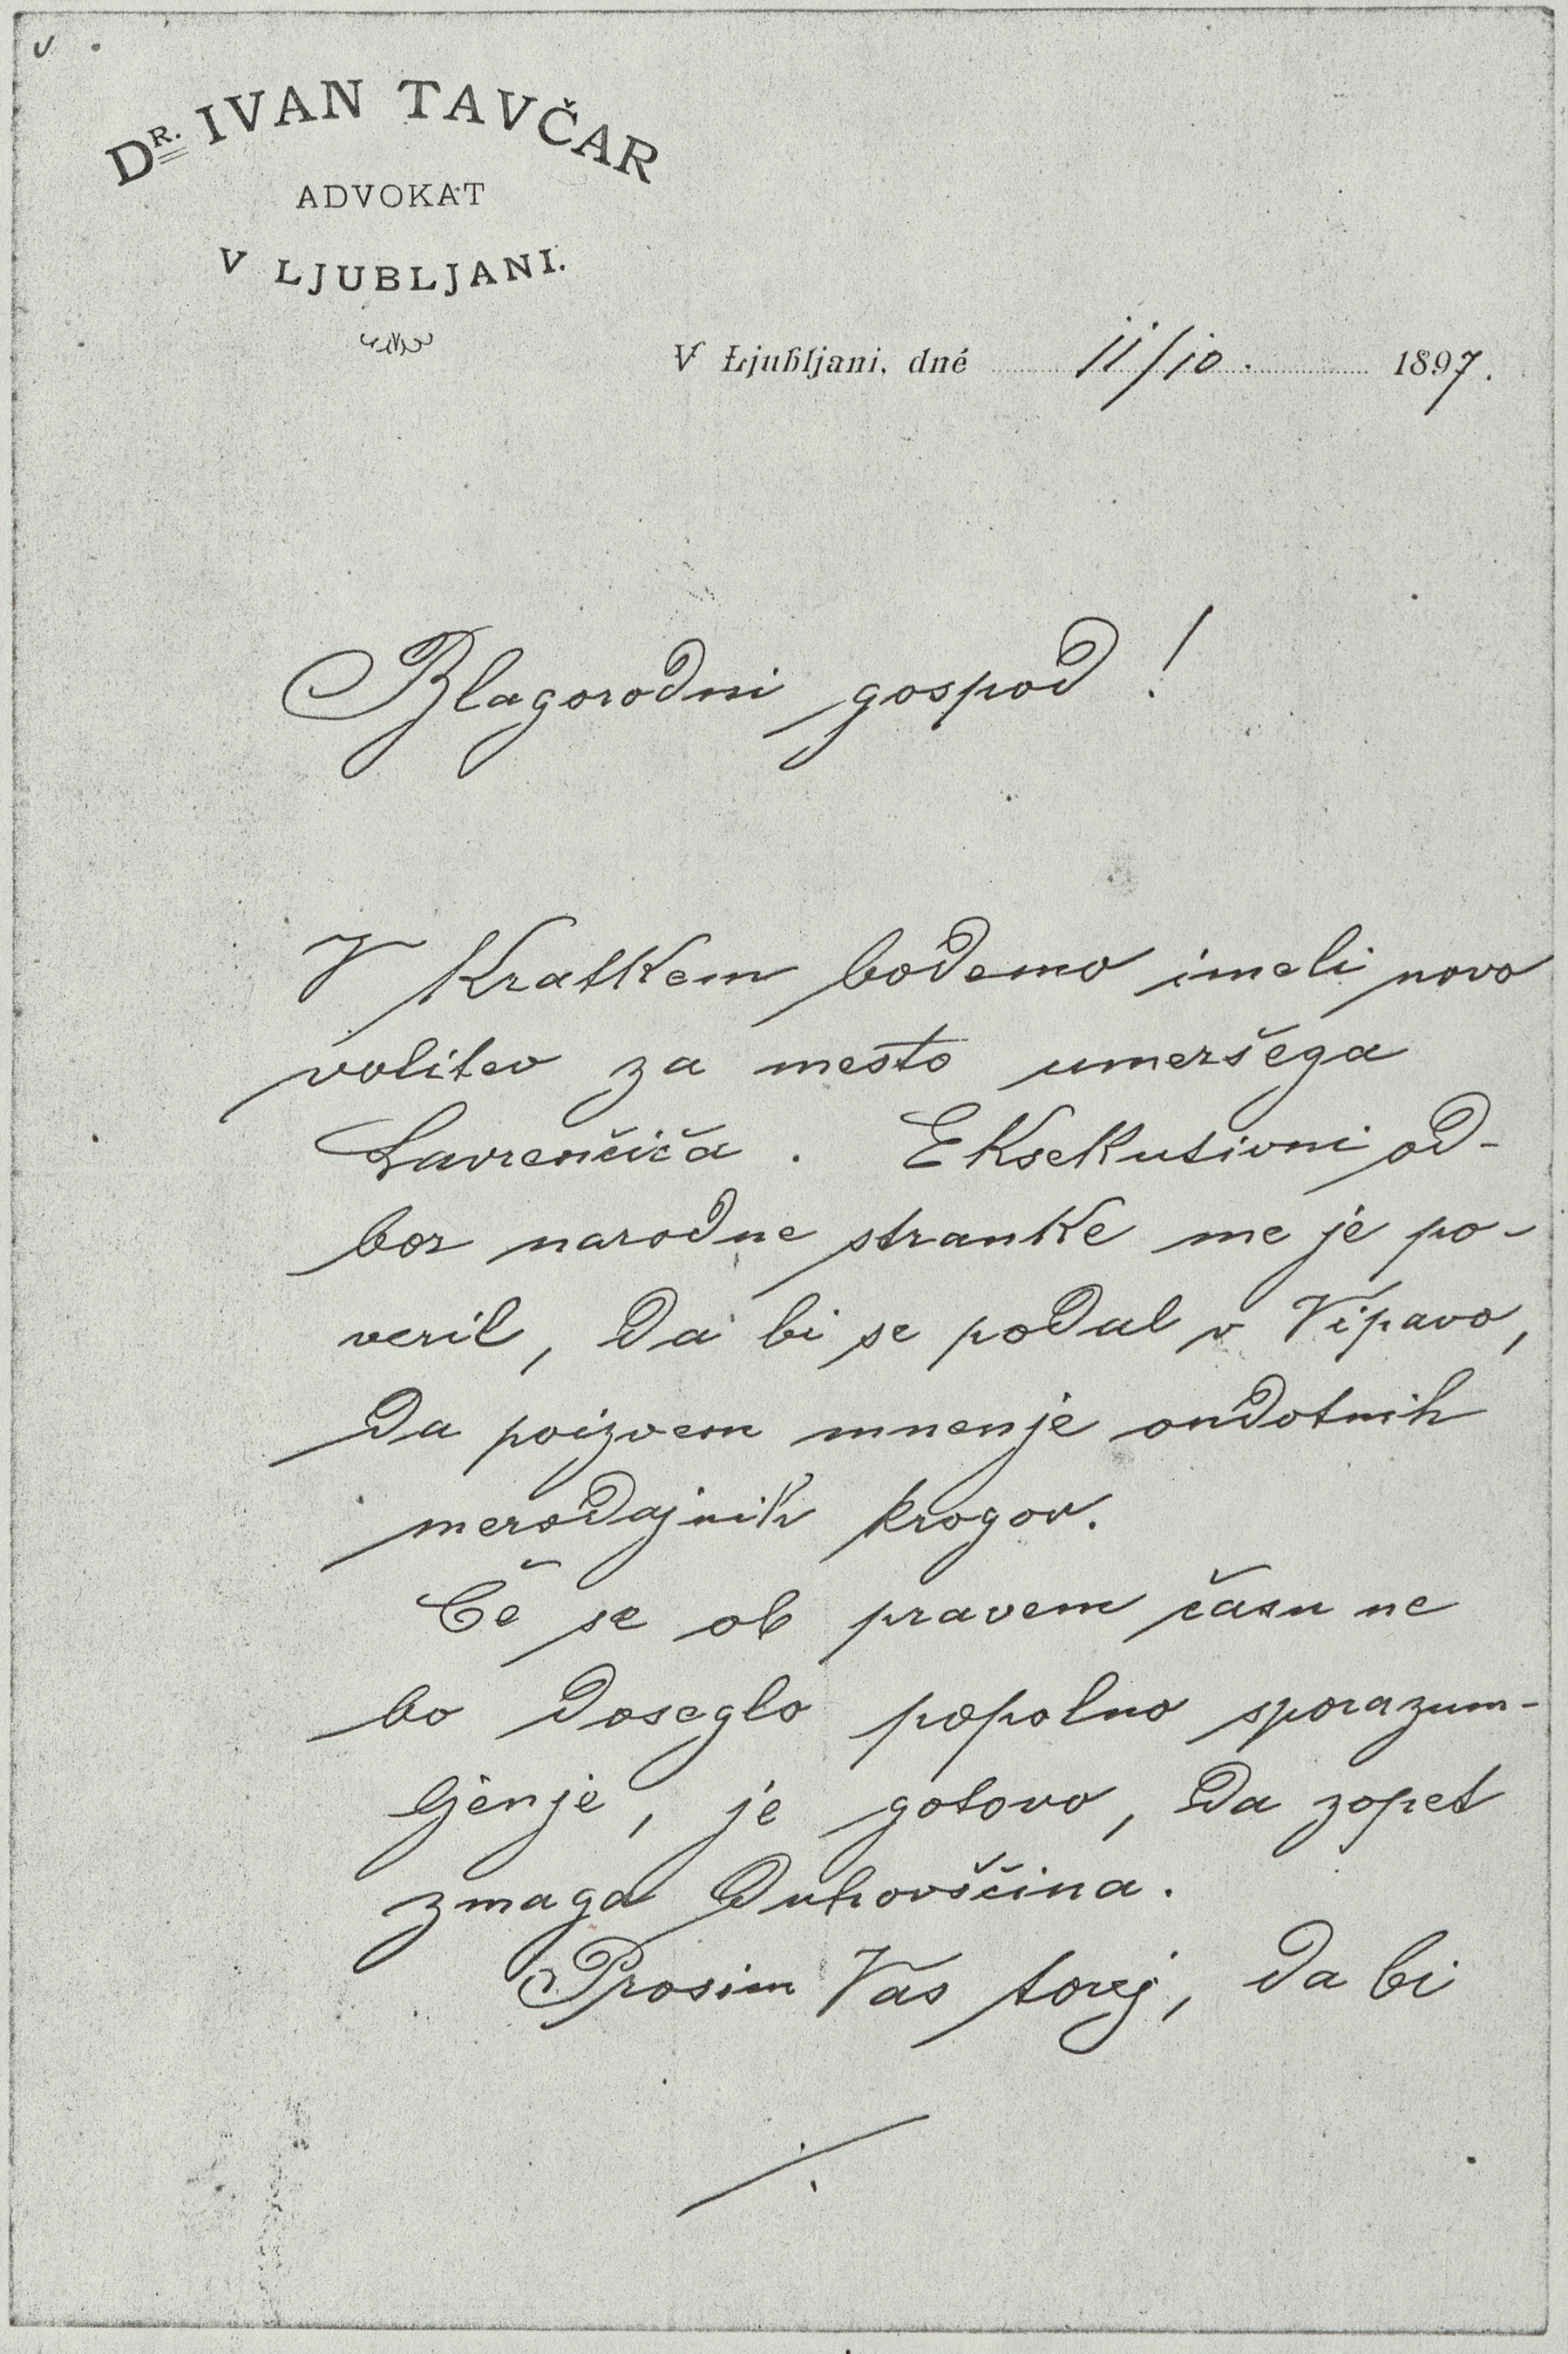 DR. IVAN TAVČAR
ADVOKAT
V LJUBLJANI.
V Ljubljani, dné 11/10. 1897.
Blagorodni gospod!
V kratkem bodemo imeli novo
volitev za mesto umeršega
Lavrenčiča. Eksekutivni od-
bor narodne stranke me je po-
veril, da bi se podal v Vipavo,
da poizvem mnenje ondotnih
merodajnih krogov.
Če se ob pravem času ne
bo doseglo popolno sporazum-
ljenje, je gotovo, da zopet
zmaga duhovščina.
Prosim Vas torej, da bi
./.